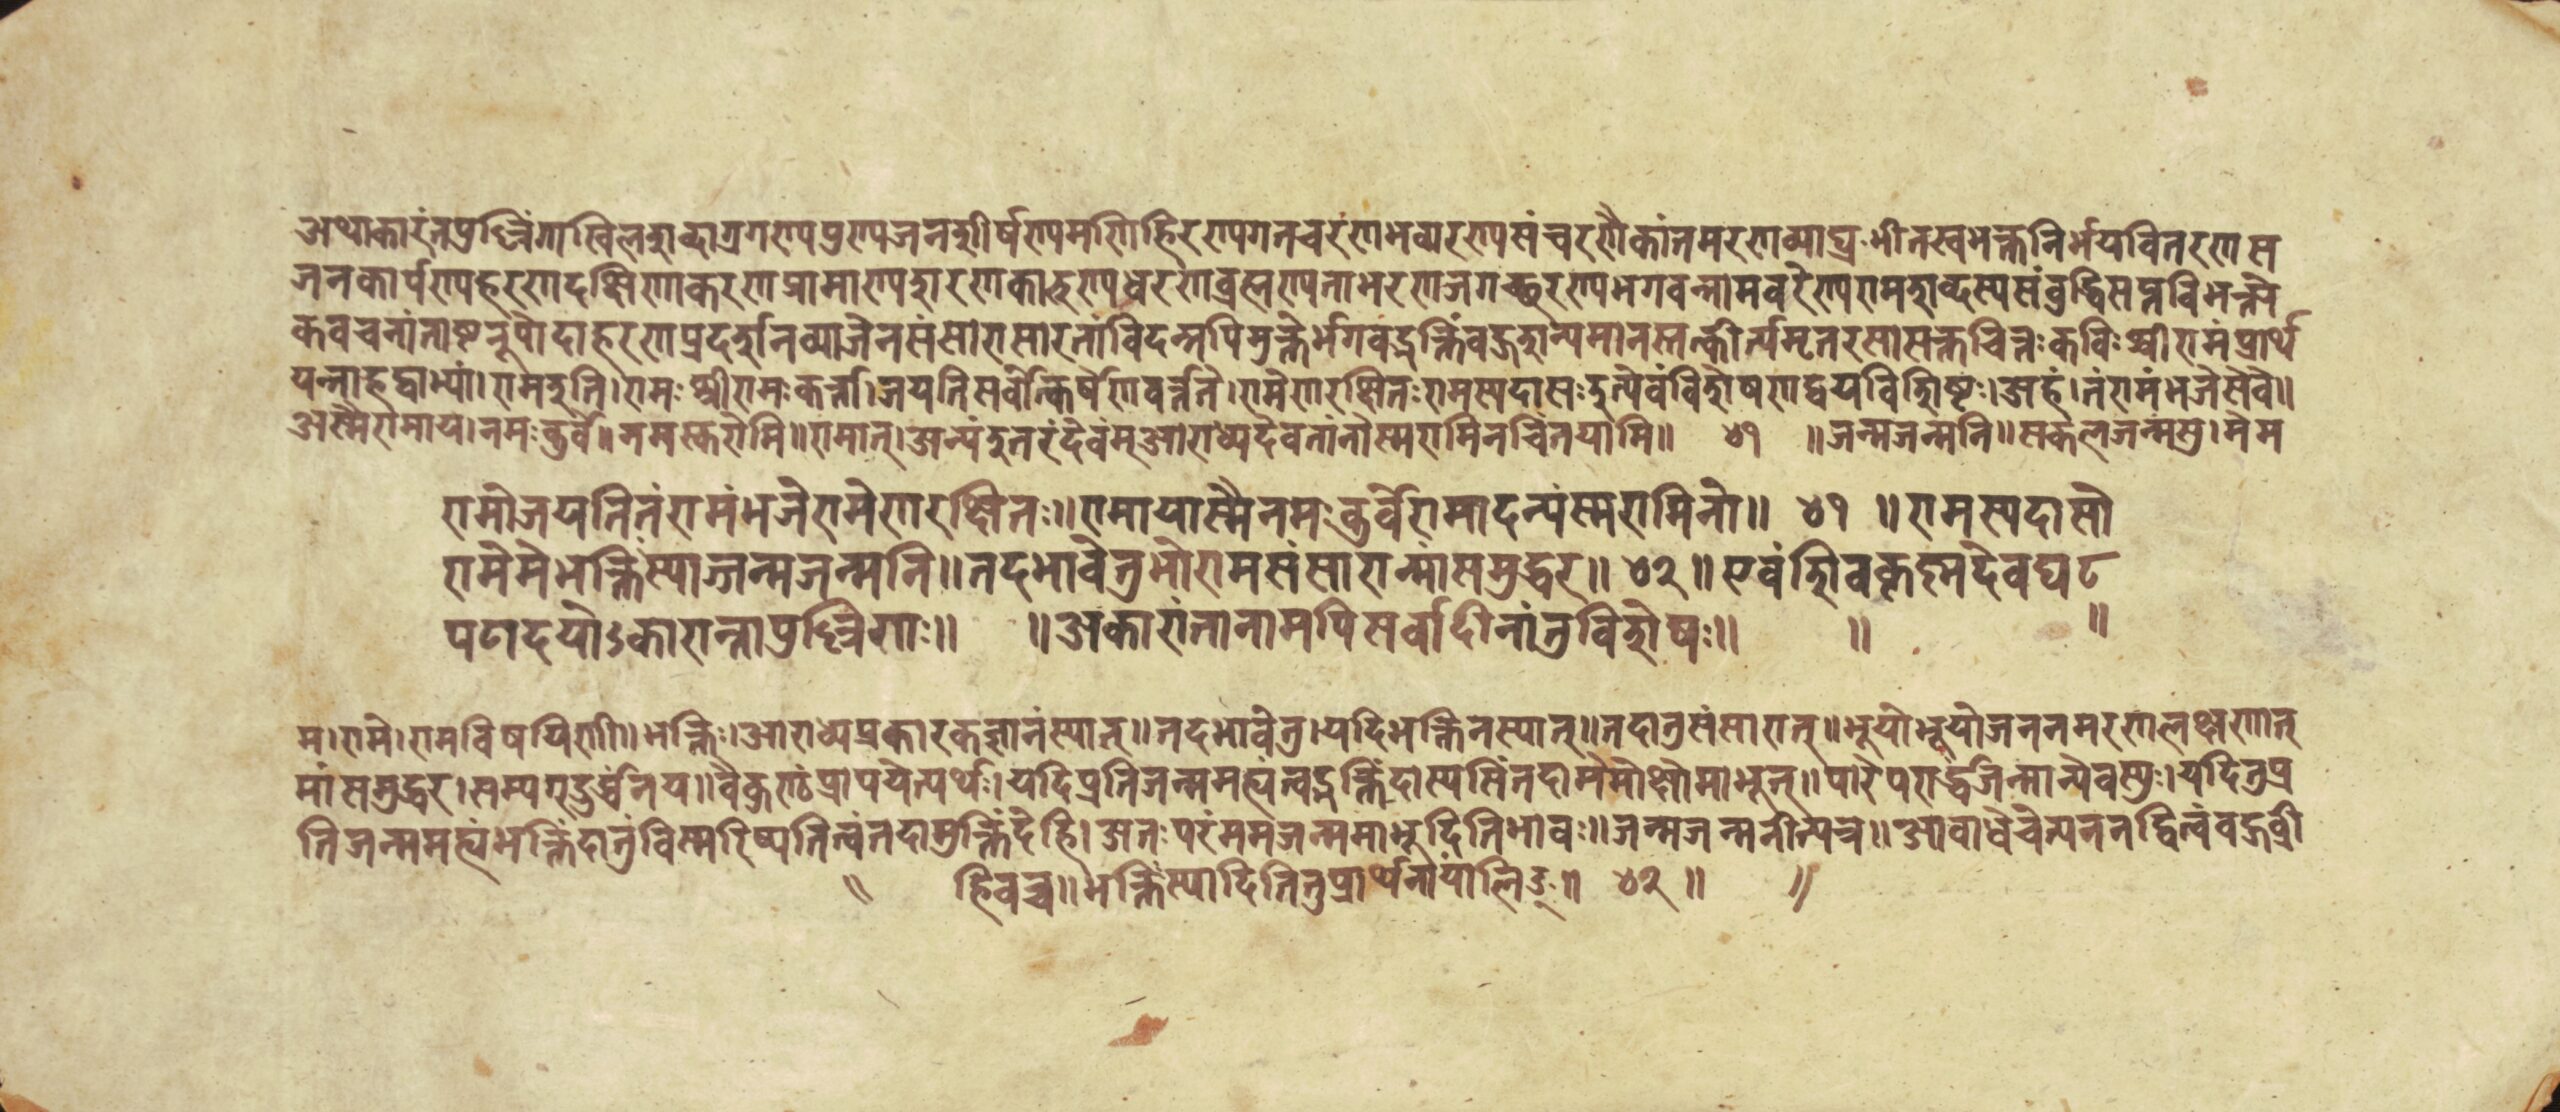 अथाकारंतप्रघ्निंगाखिलशब्दाग्रगण्यपुण्यजनशीर्षण्यमणिहिरण्यगतचरंणभव्यरण्यसंचरणैकांतमरणव्याघ्रभीतस्वभक्तनिर्भयवितरणस
जनकार्पण्यहरणदक्षिणाकरणग्रामारण्यशरणकारुण्यधरणब्रह्मण्यताभरणजगच्छरण्यभगवन्नामवरेण्यरामशब्दस्यसंबुद्धिसप्तविभक्त्यै
कवचनांताष्टनूपोदाहरणप्रदर्शनव्याजेनसंसारासारतांविदन्नपिमुक्तेर्भगवद्भक्तिंवज्रशन्यमानस्तत्कीर्त्यमृतरसासक्तचित्तःकविःश्रीरामंप्रार्थ
यन्नाहद्वाभ्यां।रामइति।रामःश्रीरामःकर्त्ता।जयतिसर्वोत्कर्षेणवर्त्तते।रामेणरक्षितःरामस्यदासःइत्येवंविशेषणद्वयविशिष्टः।अहं।तंरामंभजेसेवे॥
अस्मैरामाय।नमःकुर्वे॥नमस्करोमि॥रामात्।अन्यंइतरंदेवंम्आराध्यदेवतांनोस्मरामिनचिंतयामि॥ ७१ ॥जन्मजन्मनि॥सकलजन्मसु।मम
रामोजयतितंरामंभजेरामेणरक्षितः॥रामायास्मैनमःकुर्वेरामादन्यंस्मरामिनो॥ ७१ ॥रामस्यदासो
रामेमेभक्तिःस्याज्जन्मजन्मनि॥तदभावेतुभोरामसंसारान्मांसमुद्धर॥ ७२ ॥एवंशिवकृष्णदेवघट
पटादयोऽकारान्ताप्रघ्निगाः॥ ॥अकारांतानामपिसर्वादीनांतुविशेषः॥ ॥ ॥
म।रामे।रामविषयिणी॥भक्तिः।आराध्यप्रकारकज्ञानंस्यात्॥तदभावेतु।यदिभक्तिनस्यात्॥तदातुसंसारात्॥भूयोभूयोजननमरणलक्षणात्
मांसमुद्धर।सम्यगूर्द्ध्वंनय॥वैकुण्ठंप्रापयेत्यर्थः।यदिप्रतिजन्ममह्यंत्वद्भक्तिंदास्यसिंतदाममोक्षोमाभूत्॥पारेपरार्द्धंजन्मान्येवस्युः।यदितुप्र
तिजन्ममह्यंभक्तिंदातुंविस्मरिष्यतित्वंतदामुक्तिंदेहि।अतःपरंममजन्ममाभूदितिभावः॥जन्मजन्मनीत्यत्र॥आबाधेचेत्यननद्वित्वंवज्रव्री
॥ हिवच्च॥भक्तिःस्यादितितुप्रार्थनायांलिङ्॥ ७२ ॥ ॥